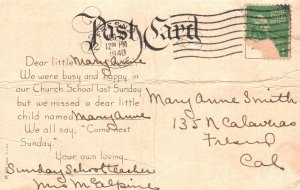 Post Card
12 30 PM
1940
Dear little Mary Anne
We were busy and happy in
our Church School last Sunday
but we missed a dear little
child named Mary Anne
We all say, "Come next
Sunday."
Your own loving,
Sunday School teacher
Mrs McAlpine
Mary Anne Smith
135 N Calaveras
Fresno
Cal